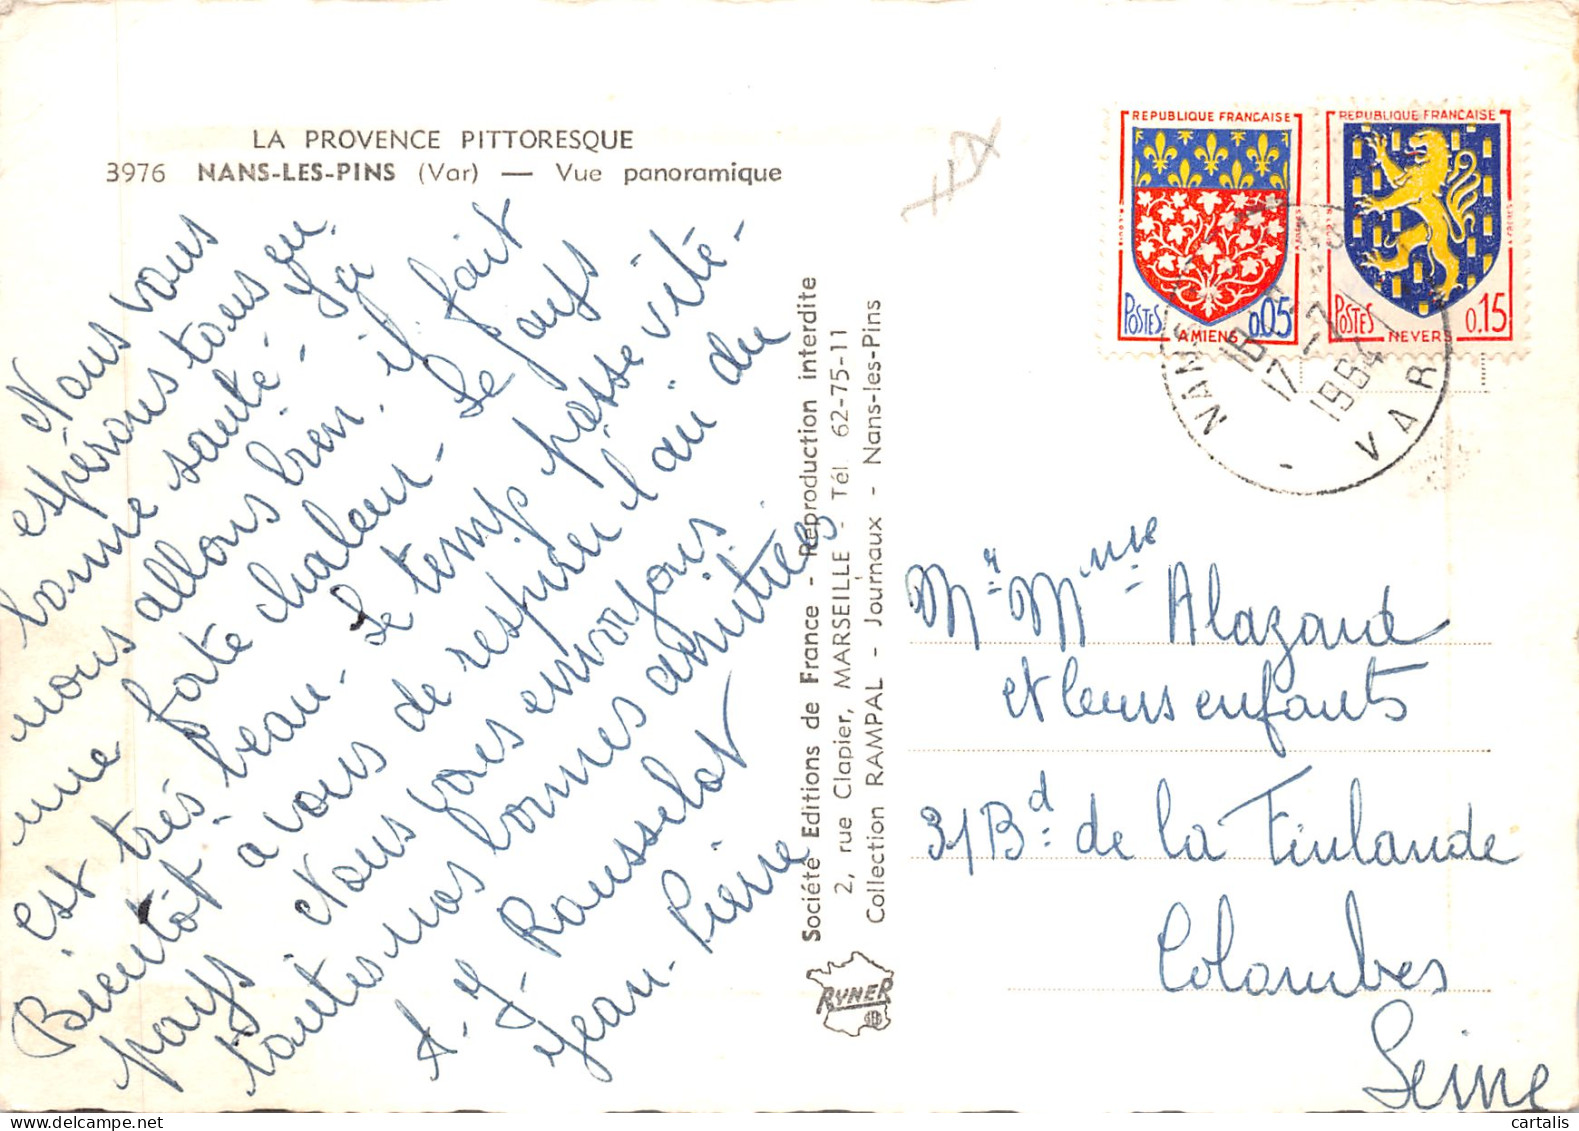 LA PROVENCE PITTORESQUE
3976 NANS-LES-PINS (Var) — Vue panoramique
Nous vous
espérons tous en
bonne santé - 
nous allons bien. il fait
une forte chaleur - Le pays
est très beau - Le temps passe vite -
Bientôt à vous de respirer l'air du
pays - Nous vous envoyons
toutes nos bonnes amitiées
A. J. Rousselot
Jean-Pierre
Société Editions de France - Reproduction interdite
2, rue Clapier, MARSEILLE - Tél. 62-75-11
Collection RAMPAL - Journaux - Nans-les-Pins
RYNER
REPUBLIQUE FRANCAISE
POSTES AMIENS 0,05
REPUBLIQUE FRANCAISE
POSTES NEVERS 0.15
NANS
16
17 - 7
1964
VAR
Mr Mme Alazard
et leurs enfants
31 Bd de la Finlande
Colombes
Seine
cartalis